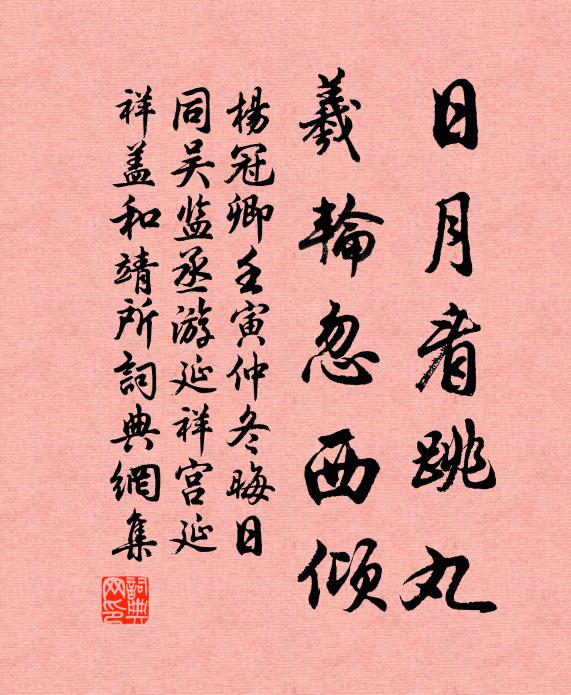 日月看跳丸
羲輪忽西傾
楊冠卿壬寅仲冬晦日
同吴监丞游延祥宫延
祥盖和靖所詞典網集
詞典网印